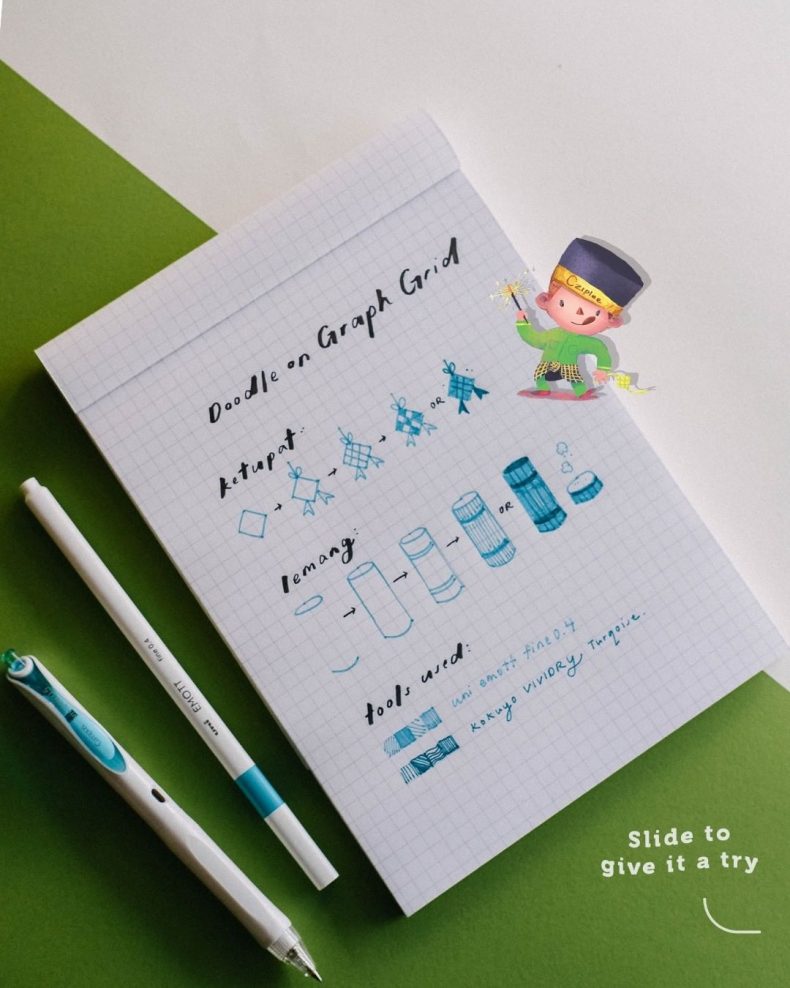 Doodle on Graph Grid
Cziplee
ketupat:
OR
lemang:
OR
tools used:
uni emott fine 0.4
KOKUYO VIVIDRY Turqoise.
fine 0.4
EMOTT
uni
Slide to
give it a try